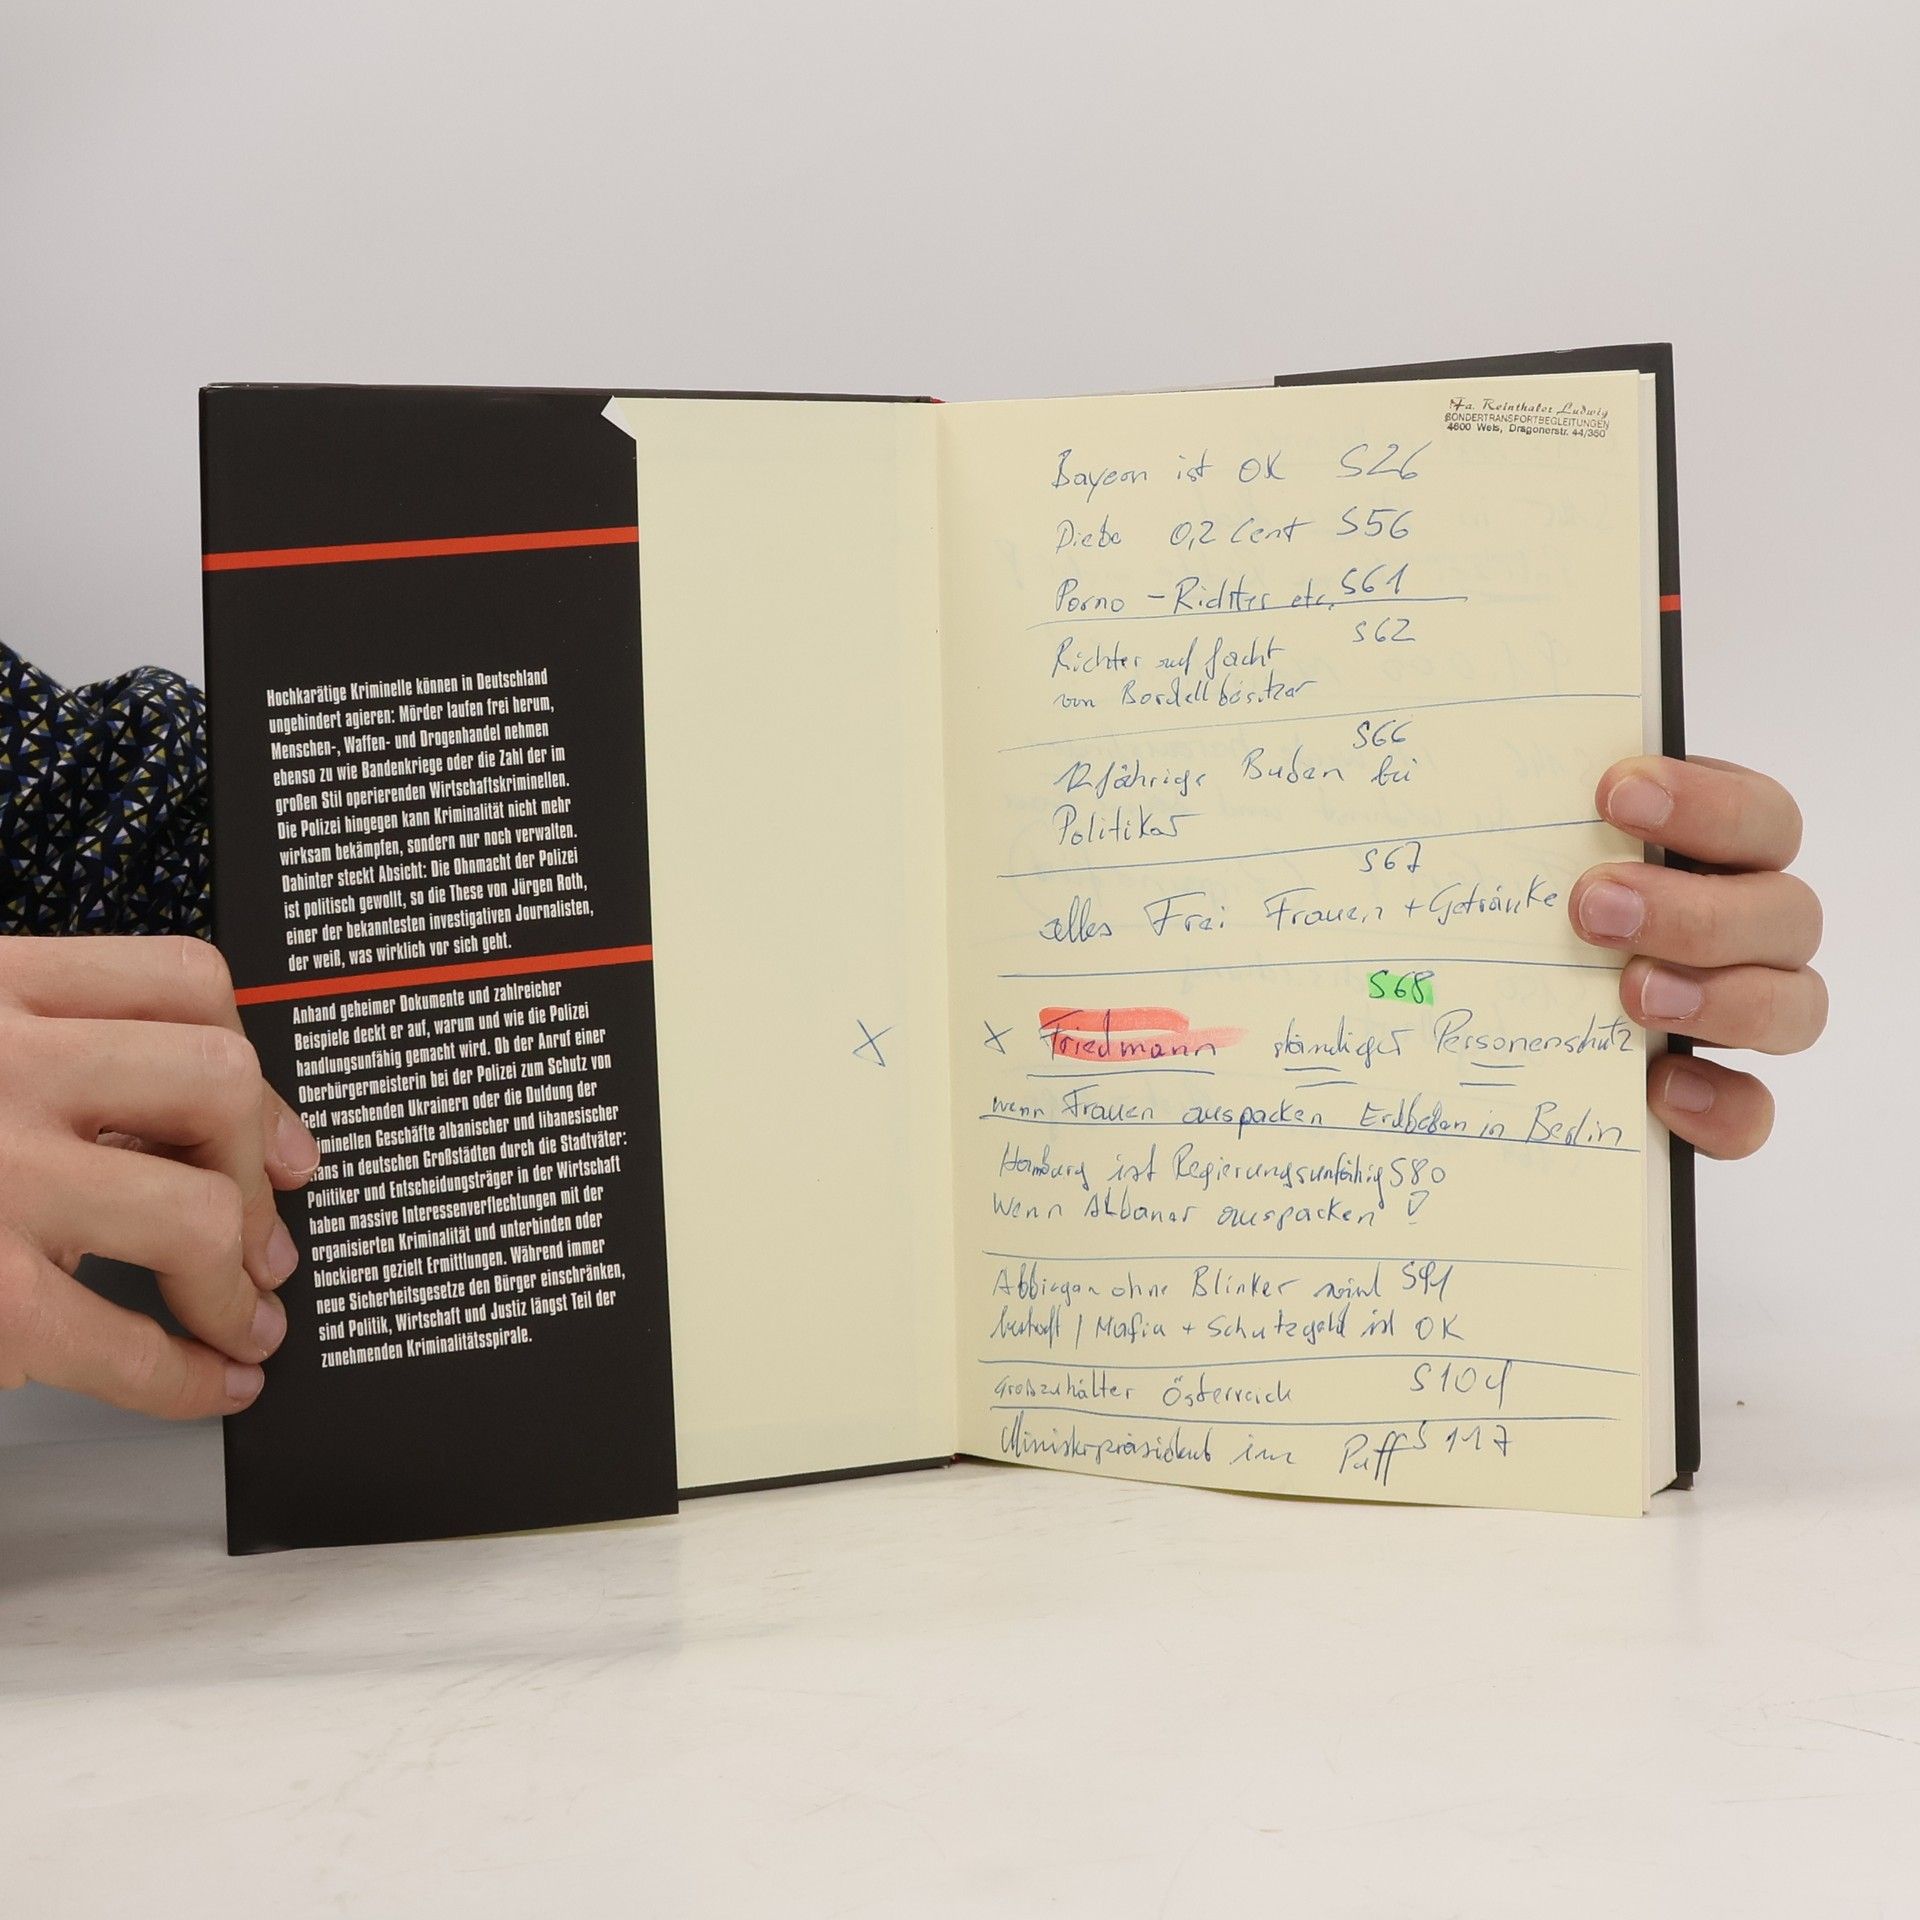 Hochkarätige Kriminelle können in Deutschland
ungehindert agieren: Mörder laufen frei herum,
Menschen-, Waffen- und Drogenhandel nehmen
ebenso zu wie Bandenkriege oder die Zahl der im
großen Stil operierenden Wirtschaftskriminellen.
Die Polizei hingegen kann Kriminalität nicht mehr
wirksam bekämpfen, sondern nur noch verwalten.
Dahinter steckt Absicht: Die Ohnmacht der Polizei
ist politisch gewollt, so die These von Jürgen Roth,
einer der bekanntesten investigativen Journalisten,
der weiß, was wirklich vor sich geht.
Anhand geheimer Dokumente und zahlreicher
Beispiele deckt er auf, warum und wie die Polizei
handlungsunfähig gemacht wird. Ob der Anruf einer
Oberbürgermeisterin bei der Polizei zum Schutz von
Geld waschenden Ukrainern oder die Duldung der
kriminellen Geschäfte albanischer und libanesischer
Clans in deutschen Großstädten durch die Stadtväter:
Politiker und Entscheidungsträger in der Wirtschaft
haben massive Interessenverflechtungen mit der
organisierten Kriminalität und unterbinden oder
blockieren gezielt Ermittlungen. Während immer
neue Sicherheitsgesetze den Bürger einschränken,
sind Politik, Wirtschaft und Justiz längst Teil der
zunehmenden Kriminalitätsspirale.
X
Fa. Reinthaler Ludwig
SONDERTRANSPORTBEGLEITUNGEN
4600 Wels, Dragonerstr. 44/350
Bayern ist OK S26
Diebe 0,2 Cent S56
Porno - Richter etc. S61
S62
Richter auf Jacht
von Bordellbesitzer
S66
12jährige Buben bei
Politiker
S67
alles Frei Frauen + Getränke
S68
X Friedmann ständiger Personenschutz
wenn Frauen auspacken Erdbeben in Berlin
Hamburg ist Regierungsunfähig S80
Wenn Albaner auspacken !
Abbiegen ohne Blinker wird S91
bestraft / Mafia + Schutzgeld ist OK
Großzuhälter Österreich S104
Ministerpräsident im Puff S117